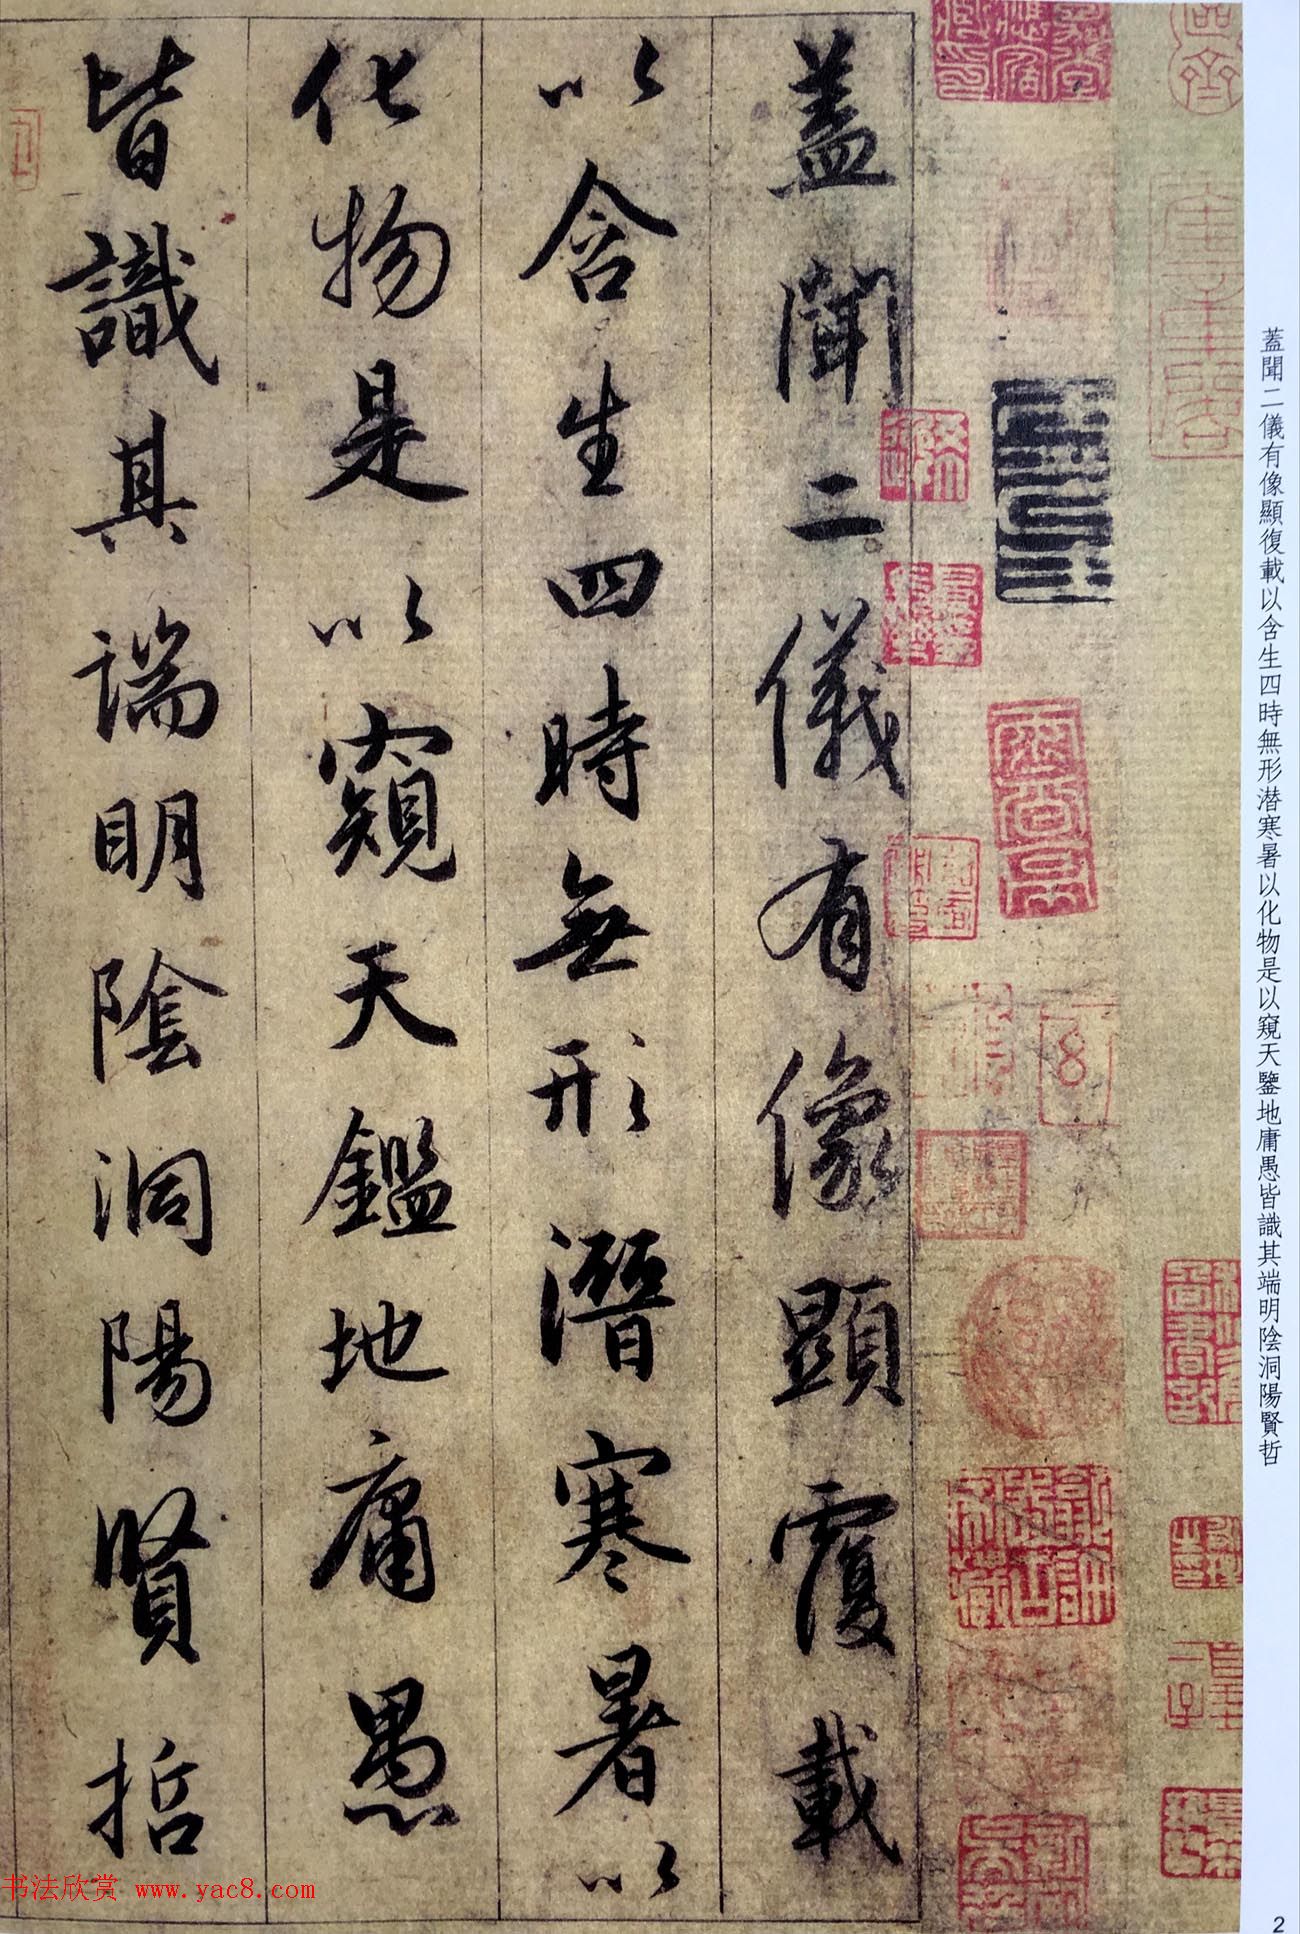 蓋聞二儀有像顯復載以含生四時無形潛寒暑以化物是以窺天鑒地庸愚皆識其端明陰洞陽賢哲
蓋聞二儀有像顯覆載
以含生四時無形潛寒暑以
化物是以窺天鑑地庸愚
皆識其端明陰洞陽賢哲
书法欣赏 www.yac8.com
2